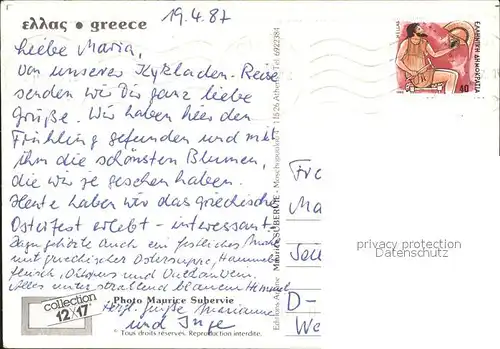 ελλας • greece
19.4.87
Liebe Maria,
von unserer Kykladen-Reise
senden wir Dir ganz liebe
Grüße. Wir haben hier den
Frühling gefunden und mit
ihm die schönsten Blumen,
die wir je gesehen haben.
Heute haben wir das griechische
Osterfest erlebt - interessant.
Dazu gehörte auch ein festliches Mahl
mit griechischer Ostersuppe, Hammel-
fleisch, Oktopus und
Alles unter strahlend blauem Himmel
Herzl. Grüße Marianne
und Inge
collection
12x17
Photo Maurice Subervie
Tous droits réservés. Reproduction interdite.
Editions Maurice SUBERVIE - 11526 Athènes Tel. 6922384
ΕΛΛΑΣ
ΕΛΛΗΝΙΚΗ ΔΗΜΟΚΡΑΤΙΑ
40
Fr
Ma
D-
We
privacy protection
Datenschutz